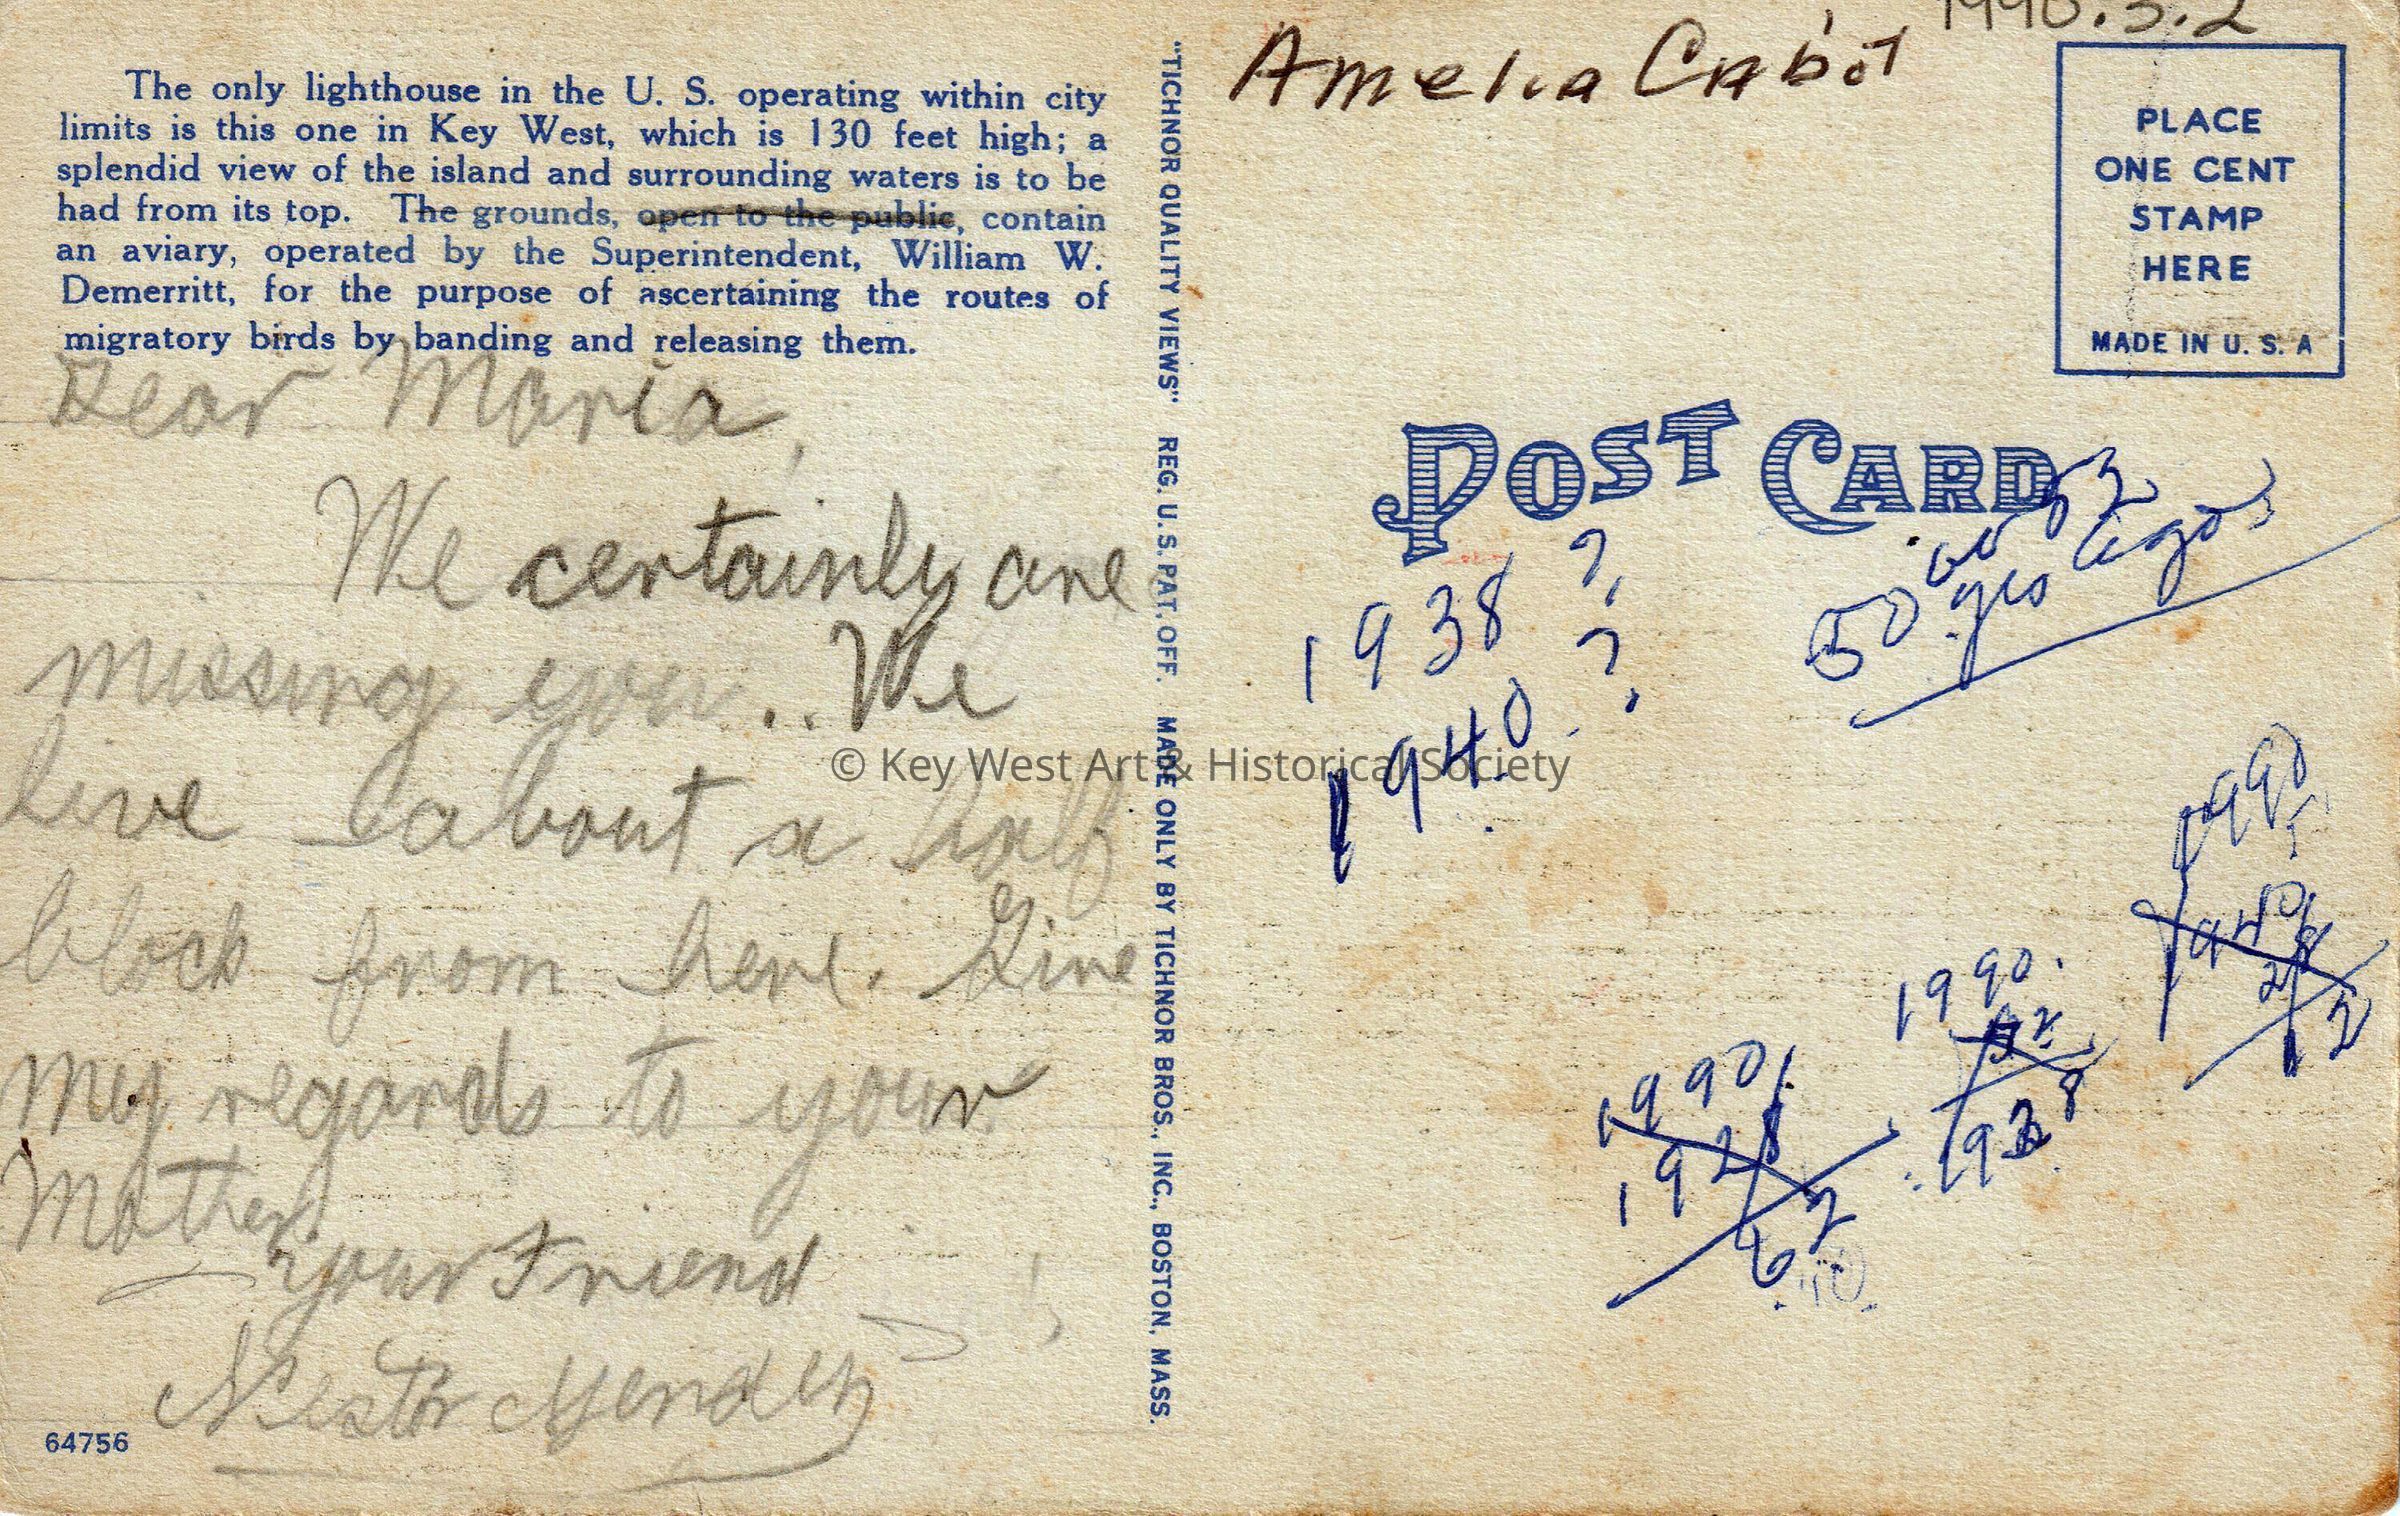 The only lighthouse in the U. S. operating within city
limits is this one in Key West, which is 130 feet high; a
splendid view of the island and surrounding waters is to be
had from its top. The grounds, open to the public, contain
an aviary, operated by the Superintendent, William W.
Demerritt, for the purpose of ascertaining the routes of
migratory birds by banding and releasing them.
Dear Maria,
We certainly are
missing you.. We
live about a half
block from here. Give
my regards to your
Mother.
Your Friend
Nestor Mendez
64756
"TICHNOR QUALITY VIEWS" REG. U. S. PAT. OFF. MADE ONLY BY TICHNOR BROS., INC., BOSTON, MASS.
Amelia Cabot
1990.5.2
PLACE
ONE CENT
STAMP
HERE
MADE IN U. S. A
POST CARD
1938 ?
1940. ?
50 or 52
yrs ago
1990
1940
1990.
52
1938
1990
1928
62
© Key West Art & Historical Society